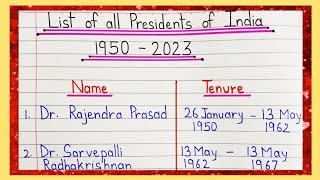 List of all Presidents of India
1950 - 2023
Name Tenure
1. Dr. Rajendra Prasad 26 January - 13 May
1950 1962
2. Dr. Sarvepalli 13 May - 13 May
Radhakrishnan 1962 1967